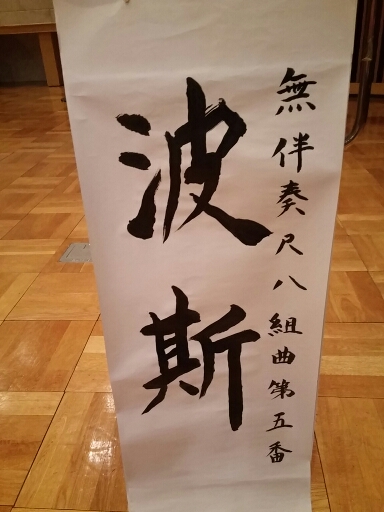 無伴奏尺八組曲第五番
波斯